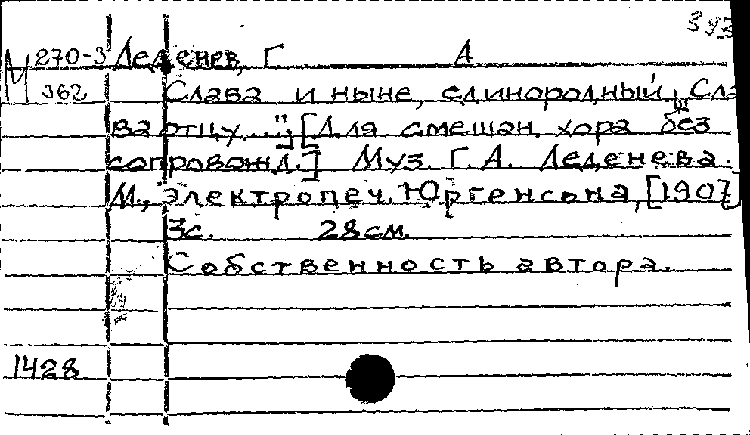 М 270-3 Леденев, Г А
362 Слава и ныне, единородный, Сла
ва отцу..."; [Для смешан. хора без
сопровожд.] Муз. Г. А. Леденева.
М., электропеч. Юргенсона, [1907]
3с. 28см.
Собственность автора.
1428